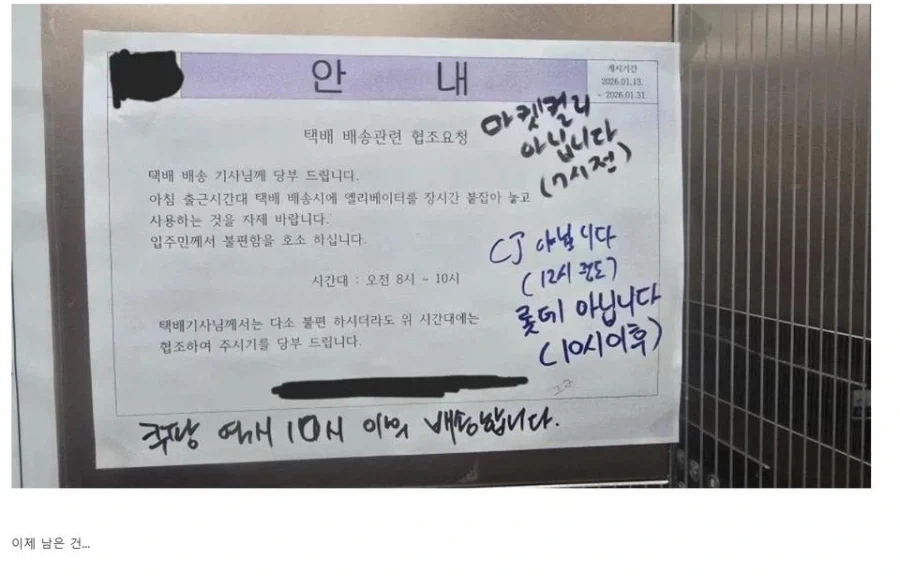 안 내
게시기간
2026.01.13.
~ 2026.01.31.
택배 배송관련 협조요청
택배 배송 기사님께 당부 드립니다.
아침 출근시간대 택배 배송시에 엘리베이터를 장시간 붙잡아 놓고
사용하는 것을 자제 바랍니다.
입주민께서 불편함을 호소 하십니다.
시간대 : 오전 8시 ~ 10시
택배기사님께서는 다소 불편 하시더라도 위 시간대에는
협조하여 주시기를 당부 드립니다.
마켓컬리
아닙니다
(7시전)
CJ 아닙니다
(12시 정도)
롯데 아닙니다
(10시이후)
쿠팡 역시 10시 이후 배송합니다.
이제 남은 건...